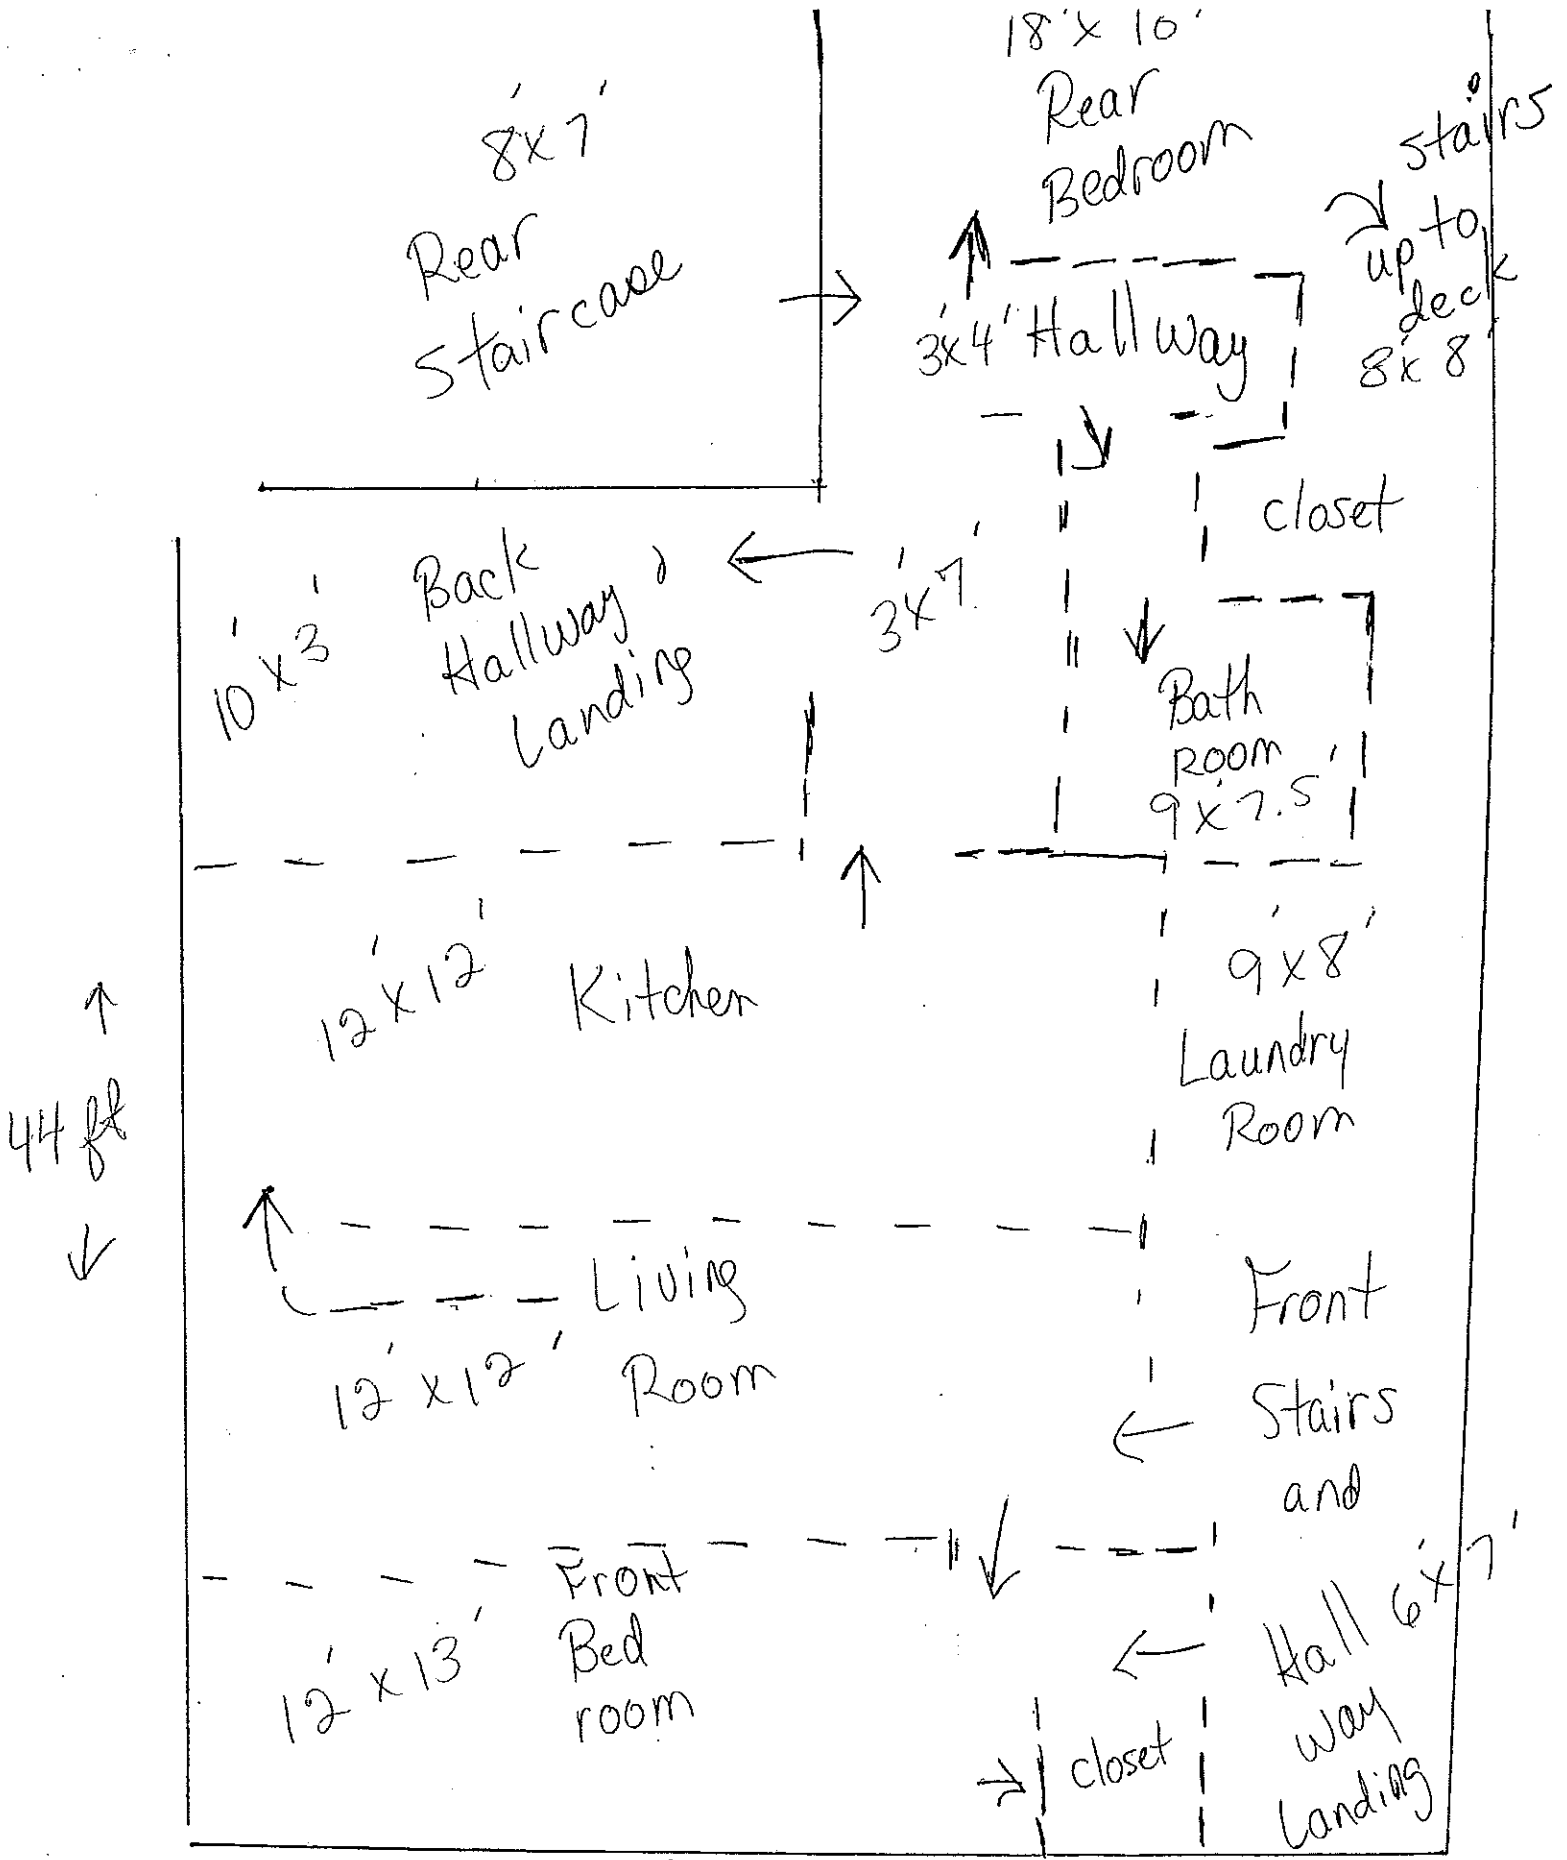 18' x 10'
Rear
Bedroom
8' x 7'
Rear
Staircase
stairs
up to
deck
8' x 8'
3' x 4' Hallway
closet
10' x 3'
Back
Hallway,
Landing
3' x 7'
Bath
Room
9' x 7.5'
12' x 12' Kitchen
9' x 8'
Laundry
Room
44 ft
Living
Room
12' x 12'
Front
Stairs
and
Hall
way
Landing
6' x 7'
Front
Bed
room
12' x 13'
closet